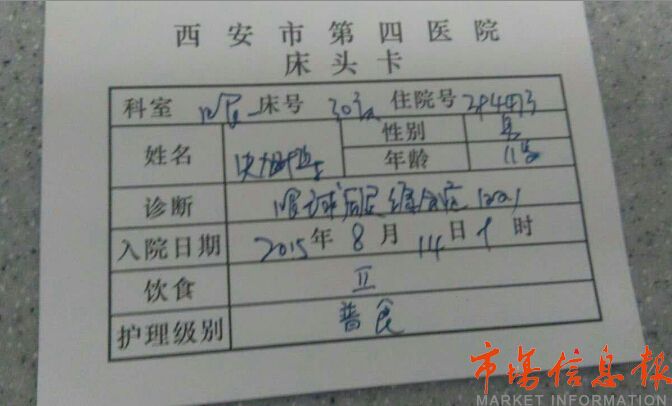 西安市第四医院
床头卡
科室 眼一 床号 30 住院号
性别 男
姓名
年龄 11岁
诊断 眼球 综合症
入院日期 2015年8月14日 时
饮食 II
护理级别 普食
市场信息报
MARKET INFORMATION